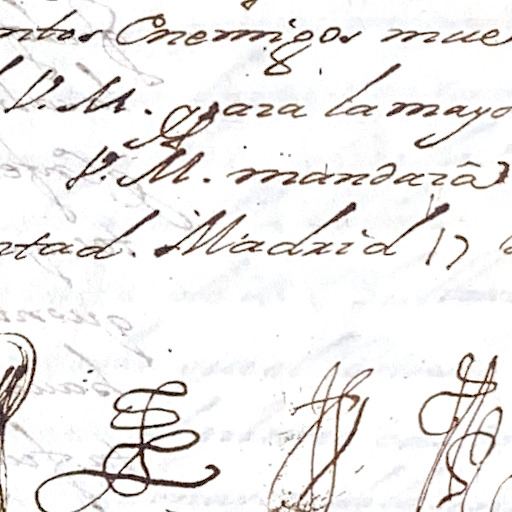 ntos Enemigos mue
V. M. para la mayo
V. M. mandarà
ntad. Madrid 17